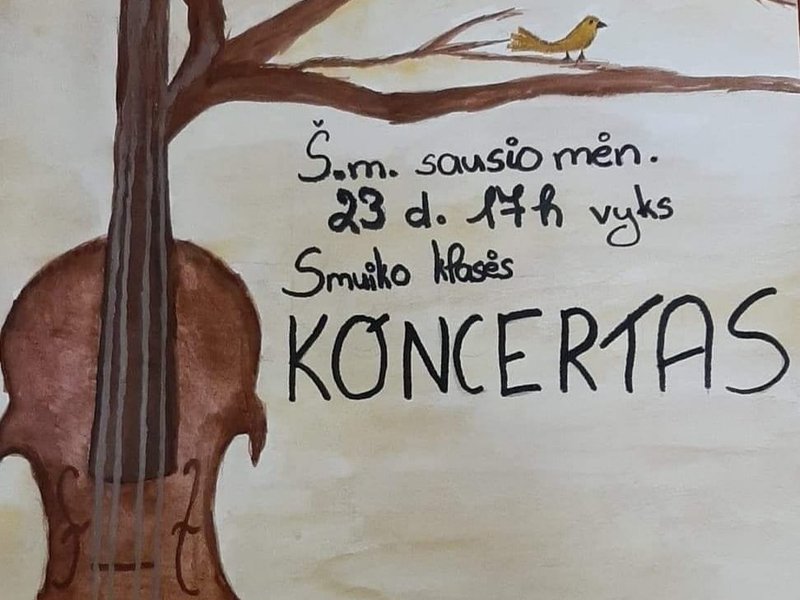 Š.m. sausio mėn.
23 d. 17h vyks
Smuiko klasės
KONCERTAS